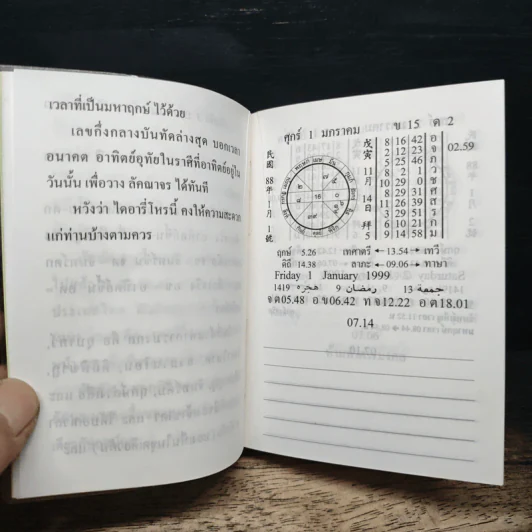 เวลาที่เป็นมหาฤกษ์ ไว้ด้วย
เลขกึ่งกลางบันทัดล่างสุด บอกเวลา
อนาคต อาทิตย์อุทัยในราศีที่อาทิตย์อยู่ใน
วันนั้น เพื่อวาง ลัคณาจร ได้ทันที
หวังว่า ไดอารี่โหรนี้ คงให้ความสะดวก
แก่ท่านบ้างตามควร
ศุกร์ 1 มกราคม ข 15 ด 2
民國 88年 1月 1號
戊寅 11月 14日 5
8 16 42 อ
2 12 23 จ
5 25 46 ภ
8 2 1 ว
10 29 0 ช
8 29 31 ศ
11 26 39 ส
3 29 51 ร
6 10 21 ก
9 14 58 ม
02.59
ฤกษ์ 5.26 เทศาตรี ←13.54→ เทวี
ดิถี 14.38 ภาระ ←09.06→ ทาษา
Friday 1 January 1999
1419 هجره 9 رمضان 13 جمعة
จ ต 05.48 อ ข 06.42 ท จ 12.22 อ ต 18.01
07.14